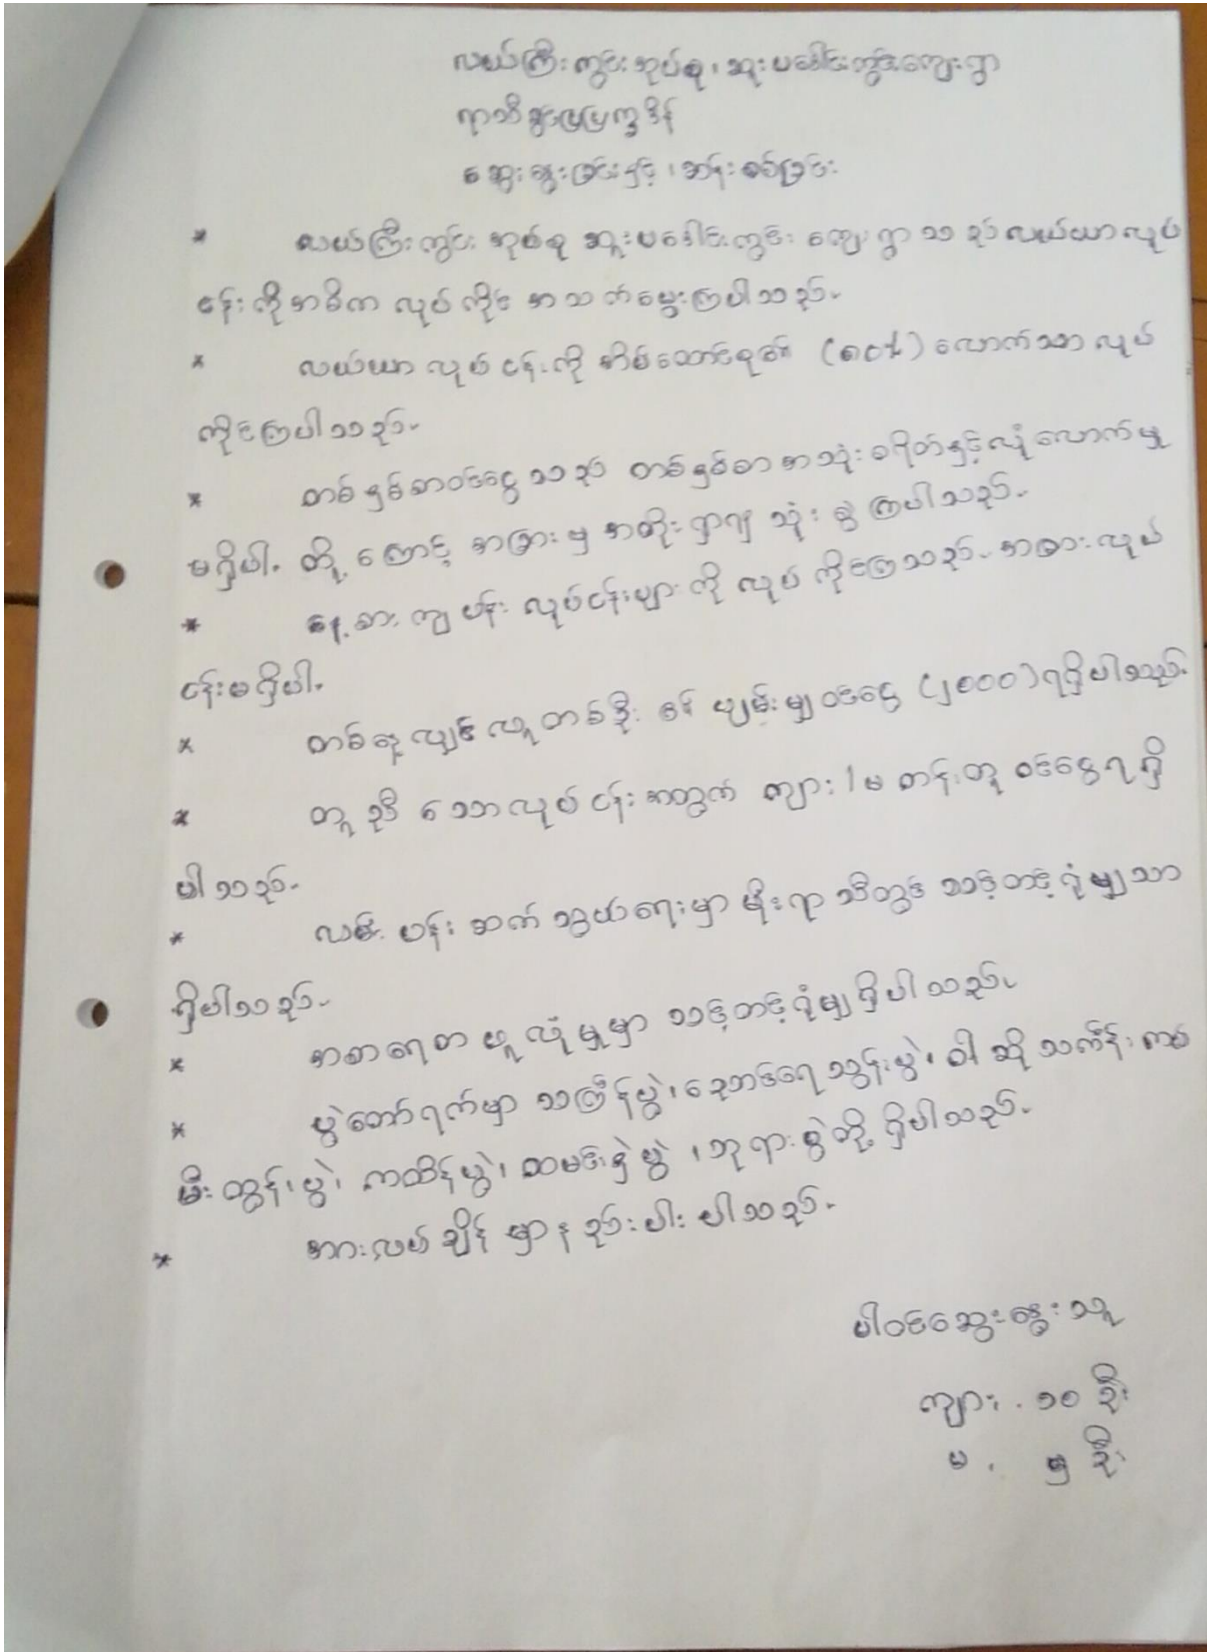 လယ်ကြီးကွင်းအုပ်စု၊ ဆူးပခေါင်းကွင်းကျေးရွာ
ရာသီခွင်ပြပြက္ခဒိန်
ဆွေးနွေးခြင်းနှင့် ၊ဆန်းစစ်ခြင်း
* လယ်ကြီးကွင်း အုပ်စု ဆူးပခေါင်းကွင်း ကျေးရွာ သည် လယ်ယာလုပ်
ငန်းကိုအဓိက လုပ်ကိုင် အသက်မွေးကြပါသည်။
* လယ်ယာ လုပ်ငန်းကို အိမ်ထောင်စု၏ (၈၀%) လောက်သာ လုပ်
ကိုင်ကြပါသည်။
* တစ်နှစ်စာဝင်ငွေသည် တစ်နှစ်စာ အသုံးစရိတ်နှင့်လုံလောက်မှု
မရှိပါ။ တို့ကြောင့် အခြားမှ အတိုးရှာ၍ သုံးစွဲ ကြပါသည်။
* နေ့စားကျပန်း လုပ်ငန်းများကို လုပ်ကိုင်ကြသည်။ အခြားလုပ်
ငန်းမရှိပါ။
* တစ်နေ့လျှင် လူတစ်ဦး ၏ ပျမ်းမျှဝင်ငွေ (၂၀၀၀) ရရှိပါသည်။
* တူညီ သောလုပ်ငန်းအတွက် ကျား/မ တန်းတူ ဝင်ငွေရရှိ
ပါသည်။
* လမ်းပန်းဆက်သွယ်ရေးမှာ မိုးရာသီတွင် သင့်တင့်ရုံမျှသာ
ရှိပါသည်။
* အစာရေစာ ဖူလုံမှုမှာ သင့်တင့်ရုံမျှရှိပါသည်။
* ပွဲတော်ရက်မှာ သင်္ကြန်ပွဲ၊ ညောင်ရေသွန်းပွဲ၊ ဝါဆိုသင်္ကန်းကပ်
မီးထွန်းပွဲ၊ ကထိန်ပွဲ၊ ထမနဲပွဲ ၊ဘုရားပွဲတို့ ရှိပါသည်။
* အားလပ်ချိန်မှာ နည်းပါးပါသည်။
ပါဝင်ဆွေးနွေးသူ
ကျား . ၁၀ ဦး
မ . ၅ ဦး